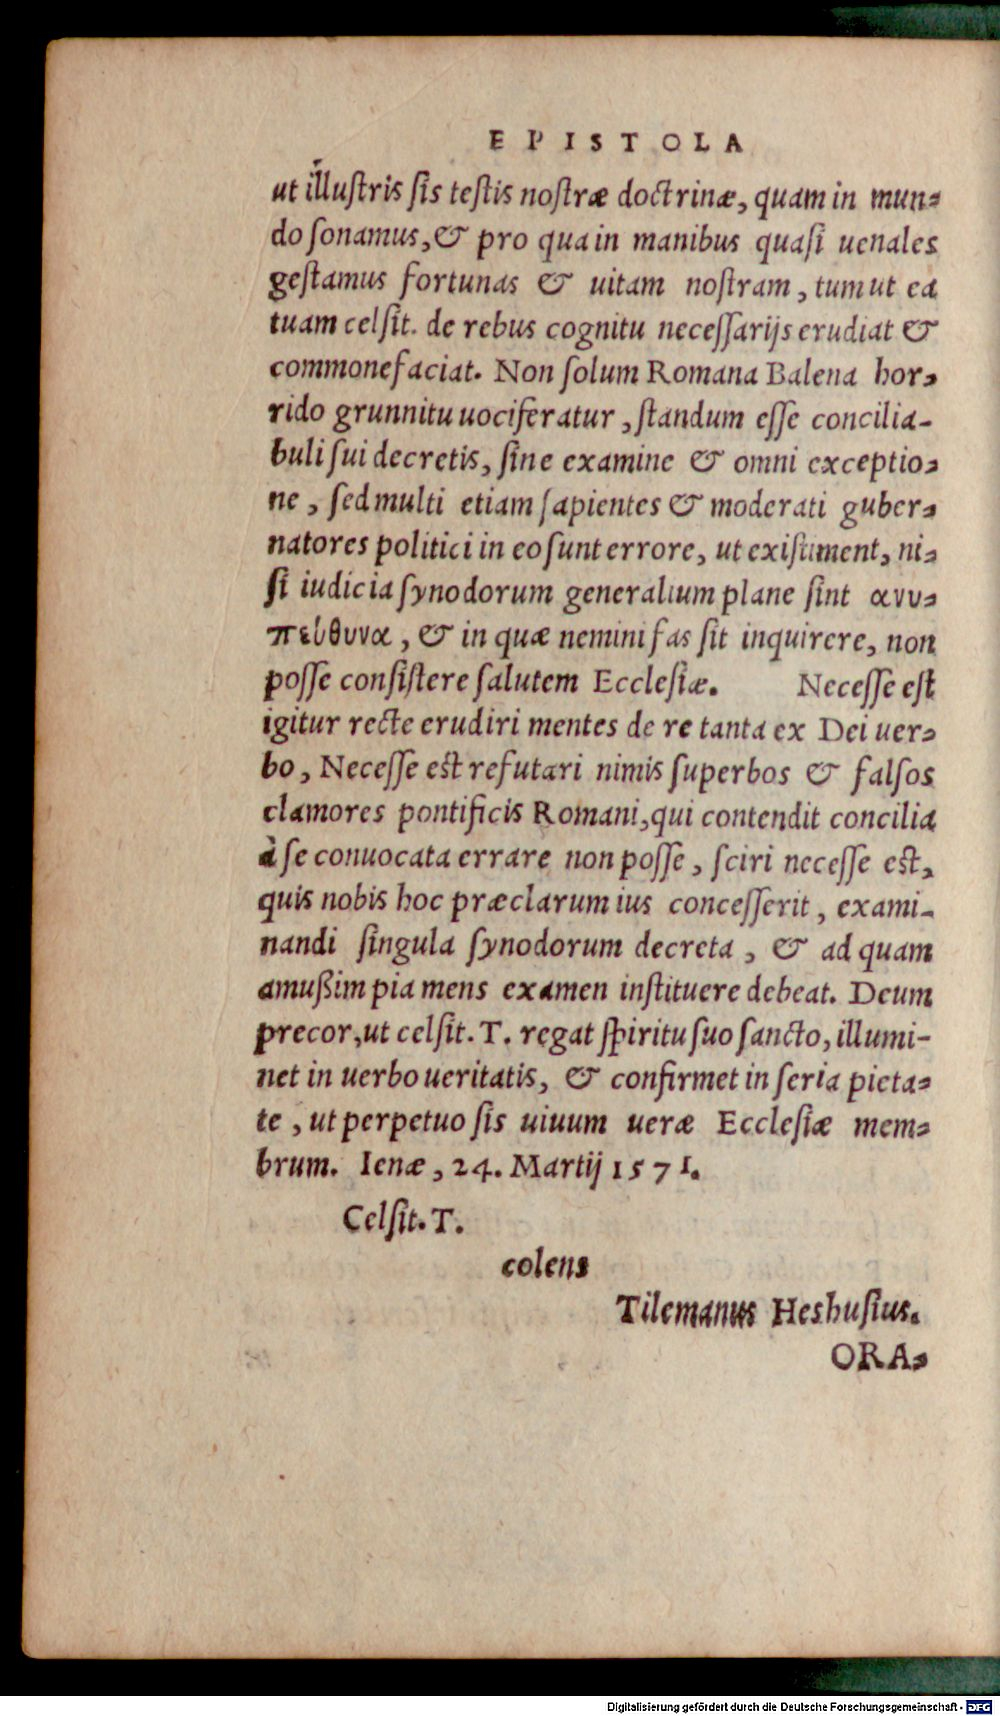 EPISTOLA
ut illuſtris ſis teſtis noſtræ doctrinæ, quam in mun⸗
do ſonamus, & pro qua in manibus quaſi uenales
geſtamus fortunas & uitam noſtram, tum ut ea
tuam celſit. de rebus cognitu neceſſarijs erudiat &
commonefaciat. Non ſolum Romana Balena hor⸗
rido grunnitu uociferatur, ſtandum eſſe concilia-
buli ſui decretis, ſine examine & omni exceptio⸗
ne, ſed multi etiam ſapientes & moderati guber⸗
natores politici in eo ſunt errore, ut exiſtiment, ni⸗
ſi iudicia ſynodorum generalium plane ſint ανυ⸗
πεύθυνα, & in quæ nemini fas ſit inquirere, non
poſſe conſiſtere ſalutem Eccleſiæ. Neceſſe eſt
igitur recte erudiri mentes de re tanta ex Dei uer⸗
bo, Neceſſe eſt refutari nimis ſuperbos & falſos
clamores pontificis Romani, qui contendit concilia
à ſe conuocata errare non poſſe, ſciri neceſſe eſt,
quis nobis hoc præclarum ius conceſſerit, exami-
nandi ſingula ſynodorum decreta, & ad quam
amußim pia mens examen inſtituere debeat. Deum
precor, ut celſit. T. regat ſpiritu ſuo ſancto, illumi-
net in uerbo ueritatis, & confirmet in ſeria pieta⸗
te, ut perpetuo ſis uiuum ueræ Eccleſiæ mem⸗
brum. Ienæ, 24. Martij 1571.
Celſit. T.
colens
Tilemanus Heshuſius.
ORA⸗
Digitalisierung gefördert durch die Deutsche Forschungsgemeinschaft - DFG